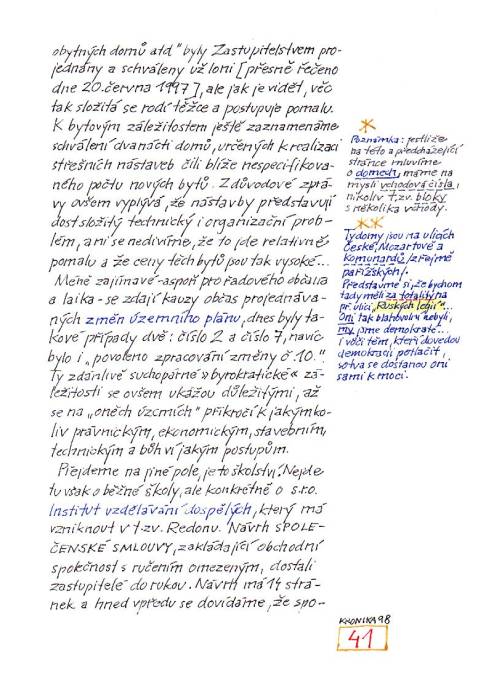 obytných domů atd" byly Zastupitelstvem pro-
jednány a schváleny už loni [přesně řečeno
dne 20. června 1997], ale jak je vidět, věc
tak složitá se rodí těžce a postupuje pomalu.
K bytovým záležitostem ještě zaznamenáme
schválení dvanácti domů, určených k realizaci
střešních nástaveb čili blíže nespecifikova-
ného počtu nových bytů. Z důvodové zprá-
vy ovšem vyplývá, že nástavby představují
dost složitý technický i organizační prob-
lém, a ni se nedivíme, že to jde relativně
pomalu a že ceny těch bytů jsou tak vysoké...
Méně zajímavé - aspoň pro řadového občana
a laika - se zdají kauzy občas projednáva-
ných změn územního plánu, dnes byly ta-
kové případy dvě: číslo 2 a číslo 7, navíc
bylo i „povoleno zpracování změny č. 10."
Ty zdánlivě suchopárné »byrokratické« zá-
ležitosti se ovšem ukážou důležitými, až
se na „oněch územích" přikročí k jakýmko-
liv právnickým, ekonomickým, stavebním,
technickým a bůh ví jakým postupům.
Přejdeme na jiné pole, je to školství. Nejde
tu však o běžné školy, ale konkrétně o s.r.o.
Institut vzdělávání dospělých, který má
vzniknout v t.zv. Redonu. Návrh SPOLE-
ČENSKÉ SMLOUVY, zakládající obchodní
společnost s ručením omezeným, dostali
zastupitelé do rukou. Návrh má 14 strá-
nek a hned vpředu se dovídáme, že spo-
*
Poznámka: jestliže
na této a předcházející
stránce mluvíme
o domech, máme na
mysli vchodová čísla,
nikoliv t.zv. bloky
s několika vchody.
**
Ty domy jsou na ulicích
České, Mozartově a
Komunardů /zřejmě
pařížských/.
Představme si, že bychom
tady měli za totality na
př. ulici „Ruských legií"...
Oni tak blahovolní nebyli,
my jsme demokraté...
i vůči těm, kteří dovedou
demokracii potlačit,
sotva se dostanou oni
sami k moci.
KRONIKA 98
41